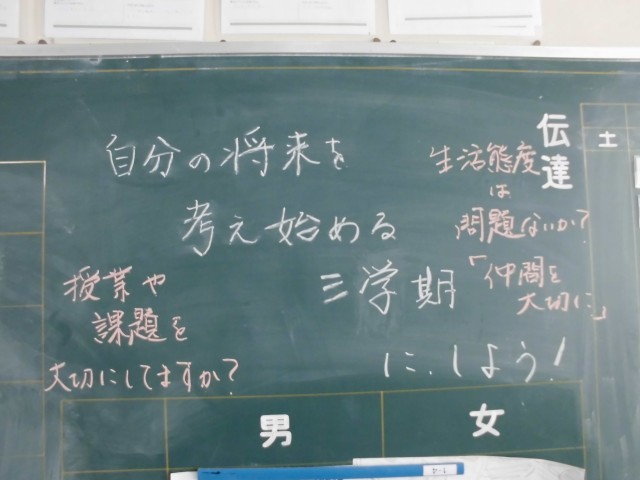 自分の将来を
考え始める
三学期
に、しよう!
生活態度
は
問題ないか?
「仲間を
大切に」
授業や
課題を
大切にしてますか?
伝達
土
男
女